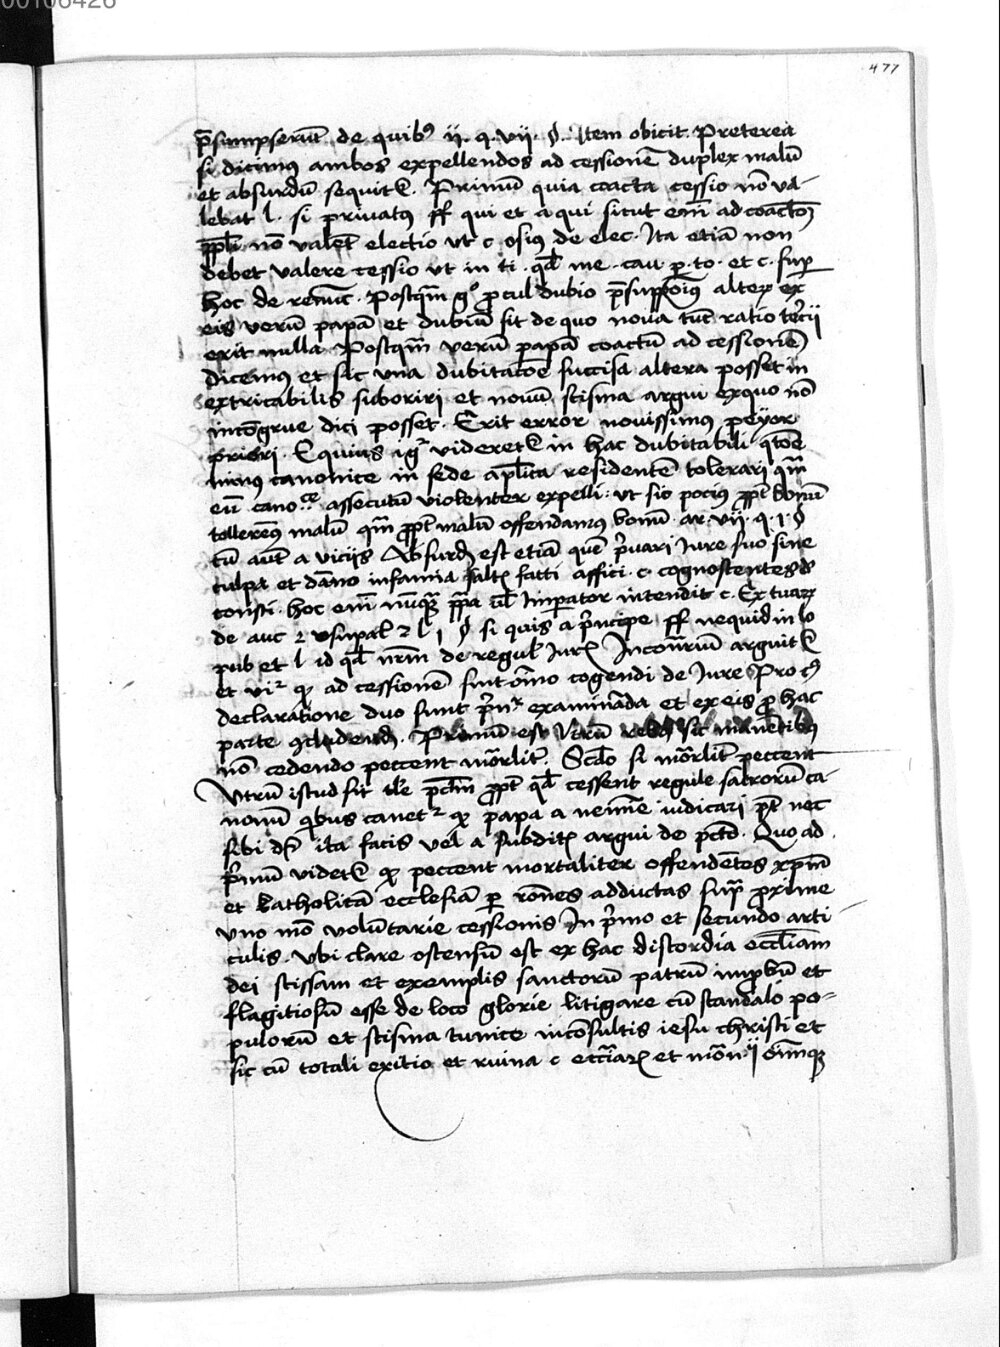 00106426
477
p̄sumpserūt de quibꝰ ij. q. vij. §. Item obicit. Preterea
si dicimus ambos expellendos ad cessionē duplex malū
et absurdū sequitur. Primū quia coacta cessio nō va-
lebat l. si privatꝰ ff qui et a qui sicut em̄
nō valet electio ut c. osius de elec. Ita etiā non
debet valere cessio ut in ti. qd̄ me. cau. et c. sup
hoc de renūc. Postqm̄ gͦ procul dubio p̄supponimꝰ alterꝝ ex
eis verū papā et dubiū sit de quo nova tūc ratio
erit nulla Postqm̄ verū papā coactū ad cessionē
dicemus et sic una dubitacōe succisa altera posset in
extricabilis suboriri et novū scisma argui exquo nō
incōgrue dici posset. Erit error novissimus peyor
priori. Equius igͬ videretur in hac dubitabili qͣtōe
minus canonice in sede aplica residentē tolerari qm̄
eū canoͨͤ assecutū violenter expelli: ut sic pocius ꝓpt bonū
tolleremꝰ malū qm̄ ꝓpt malū offendamꝰ bonū. ar. vij. q. 1. §
tū aut̄ a vicijs Absurdū est etiā quē p̄vari Jure suo sine
culpa et dāno infamia saltē facti affici. c. cognoscentes de
consti. hoc em̄ nūqͣꝫ ppa ul̄ Imperator intendit c. Ex tuarꝝ
de auc 2 usu pal 2 l 1 § si quis a p̄ncipe ff nequid in lo
pub et l id qd̄ nrm̄ de regul Jurꝭ Incontrariū arguitur
et viͬ qꝫ ad cessionē sint omnino cogendi de Jure Pro
declaratione duo sunt examinanda et ex eis pro hac
parte ꝯcludendū. Primū est utrū rebꝰ sic manentibꝰ
nō cedendo peccent mōrlitͬ. Scd̄o si mōrlitͬ peccent
Utrū istud sit tale ꝓpt qd̄ cessent regule sacrorū ca-
nonū qibus cavetͬ qꝫ papa a nemīe iudicari pt̄ nec
sibi dr̄ ita facis vel a subditꝭ argui de pctō. Quo ad
p̄mū videtur qꝫ peccent mortaliter offendētes xpm̄
et katholicā ecclesiā per rōnes adductas supͣ proxime
uno mō volūtarie cessionis In p̄mo et secundo arti-
culis. Ubi clare ostensū est ex hac discordia eccliam
dei scissam et exemplis sanctorū patrū improbū et
flagitiosū esse de loco glorie litigare cū scandalo po-
pulorū et scisma tunice incōsultis iesu christi et
sic cū totali exitio et ruina